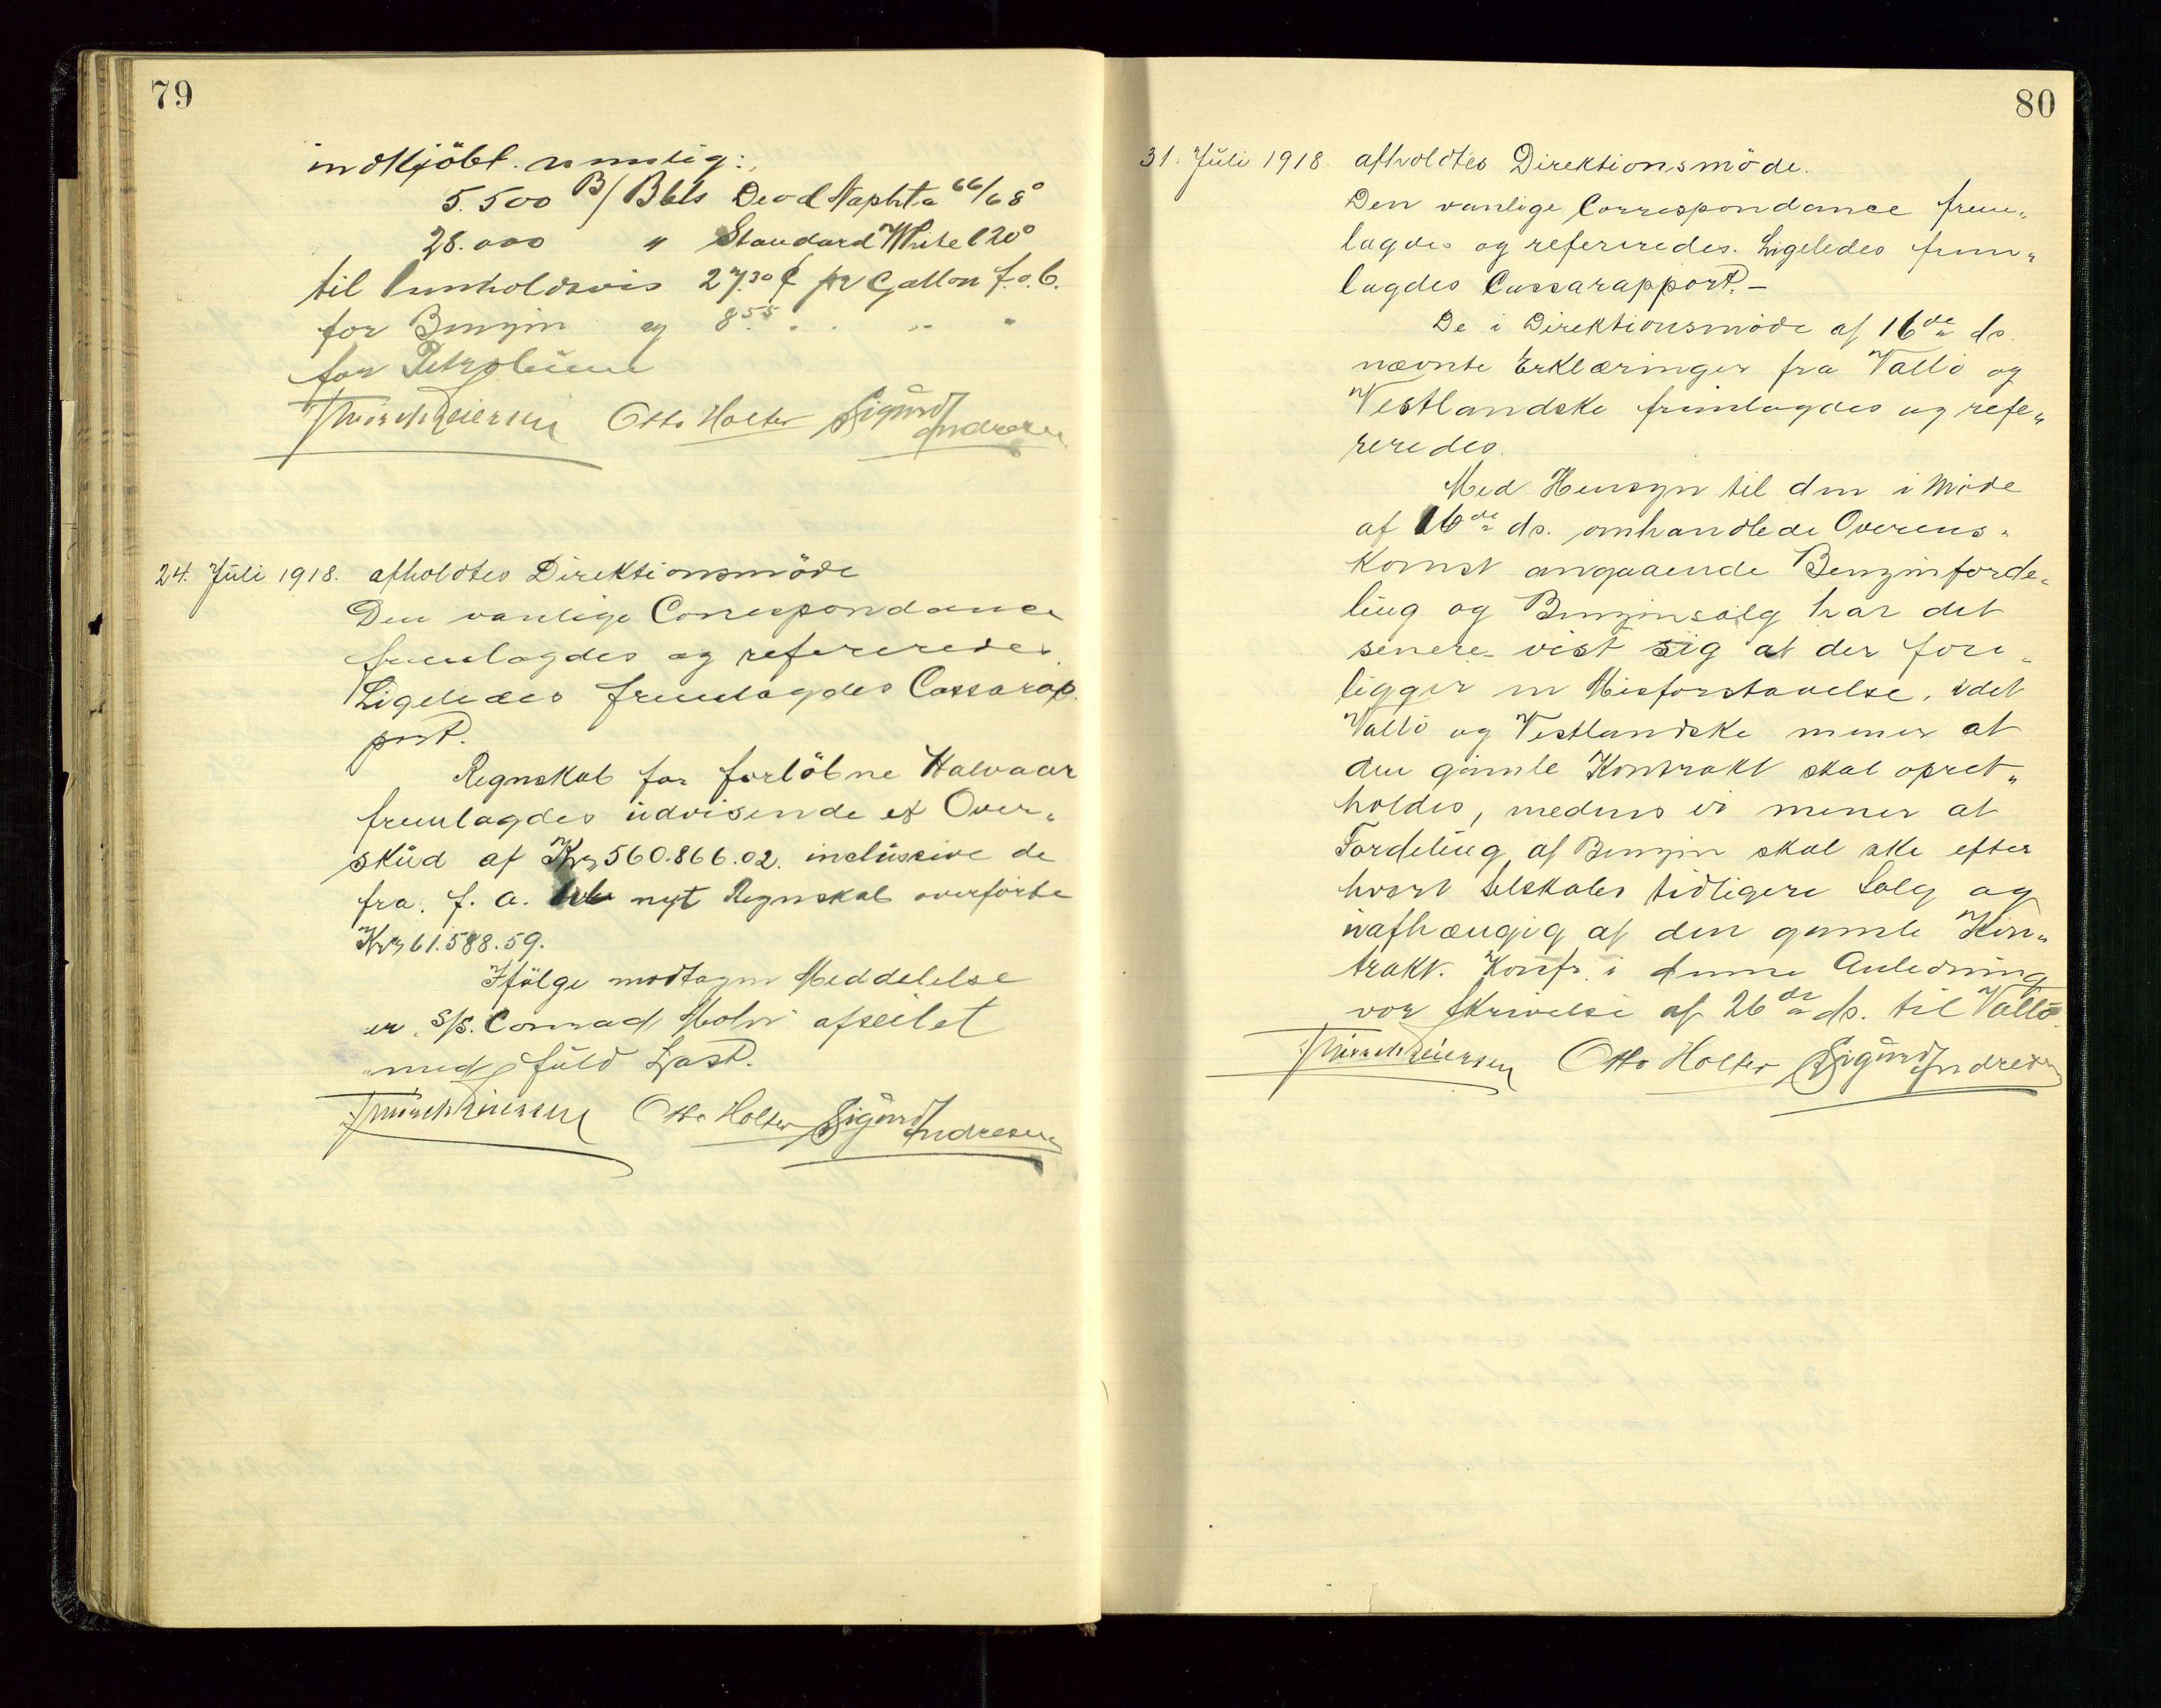 79
indkjöbt. nemlig:
5.500 B/ Bbls Deod Naphta 66/68°
28.000 " Standard White 120°
til henholdsvis 27.30 ¢ pr Gallon f.o.b.
for Benzin og 8.55 " " "
for Petroleum
Otto Holter Sigurd Andresen
24. Juli 1918. afholdtes Direktionsmöde
Den vanlige Correspondance
fremlagdes og refereredes.
Ligeledes fremlagdes Cassarap-
port.
Regnskab for forlöbne Halvaar
fremlagdes udvisende et Over-
skud af Kr 560.866.02. inclusive de
fra f. a. nyt Regnskab overförte
Kr 61.588.59.
Ifölge modtagen Meddelelse
er S/S. "Conrad Mohr" afseilet
med fuld Last.
Otto Holter Sigurd Andresen
80
31. Juli 1918. afholdtes Direktionsmöde.
Den vanlige Correspondance frem-
lagdes og refereredes. Ligeledes frem-
lagdes Cassarapport.-
De i Direktionsmöde af 16de ds.
nævnte Erklæringer fra Vallö og
Vestlandske fremlagdes og refe-
reredes.
Med Hensyn til den i Möde
af 16de ds. omhandlede Overens-
komst angaaende Benzinforde-
ling og Benzinsalg har det
senere vist sig at der fore-
ligger en Misforstaaelse, idet
Vallö og Vestlandske mener at
den gamle Kontrakt skal opret-
holdes, medens vi mener at
Fordeling af Benzin skal ske efter
hvert Selskabs tidligere Salg og
uafhængig af den gamle Kon-
trakt. Konfr. i denne Anledning
vor Skrivelse af 26de ds. til Vallö.
Otto Holter Sigurd Andresen